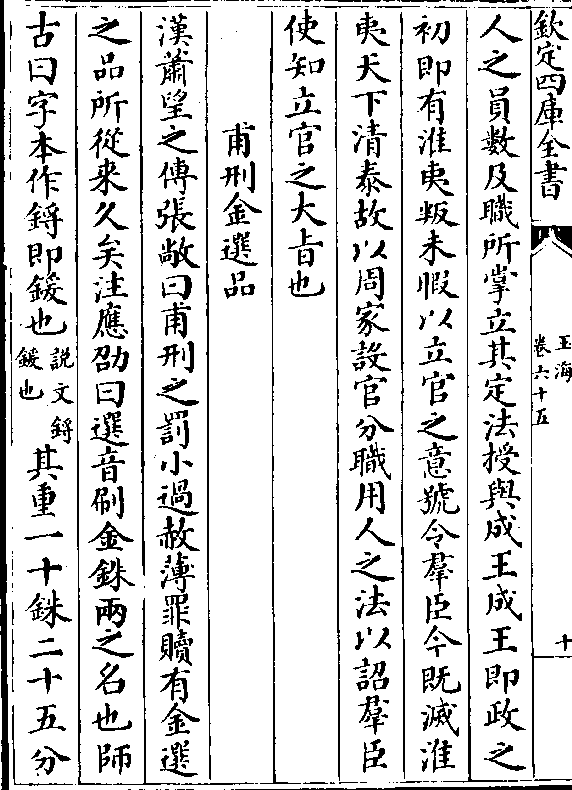 欽定四庫全書
玉海
卷六十五
十
人之員數及職所掌立其定法授與成王成王即政之
初即有淮夷叛未暇以立官之意號令羣臣今既滅淮
夷天下清泰故以周家設官分職用人之法以詔羣臣
使知立官之大旨也
甫刑金選品
漢蕭望之傳張敞曰甫刑之罰小過赦薄罪贖有金選
之品所從來久矣注應劭曰選音刷金銖兩之名也師
古曰字本作鋝即鍰也說文鋝鍰也其重一十銖二十五分